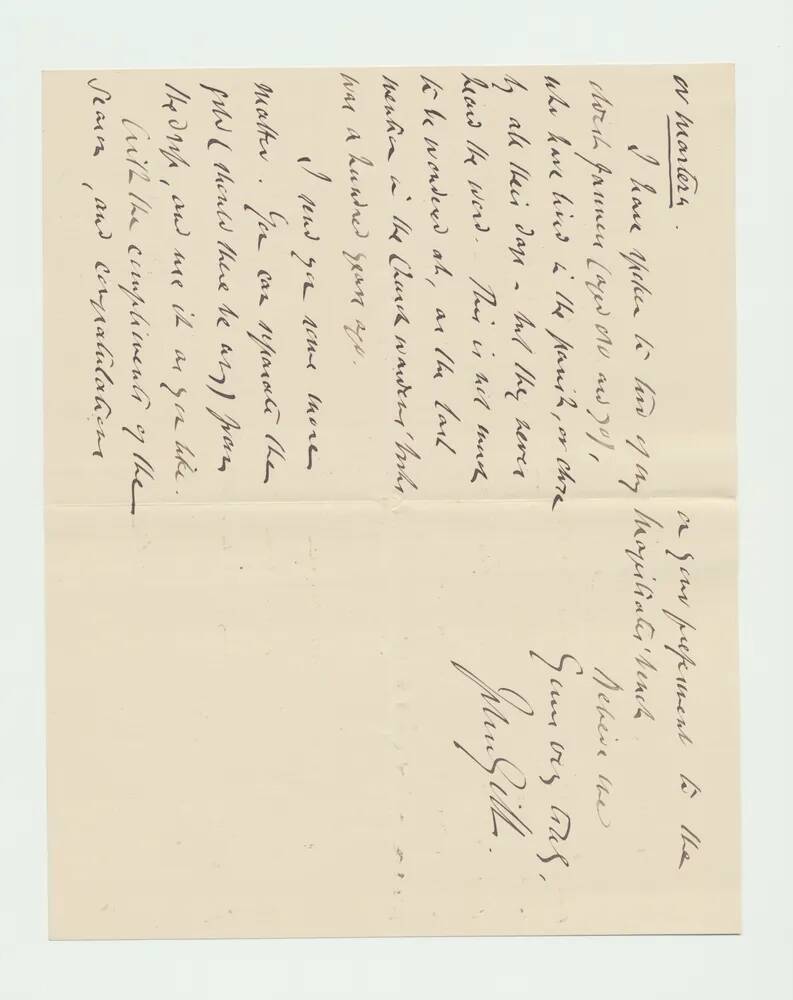 or martern.
I have spoken to two of my
Manx farmers (aged 80 and 70),
who have lived in the parish, or close
by all their days - but they never
heard the word. This is not much
to be wondered at, as the last
mention in the Churchwardens' books
was a hundred years ago.
I send you some more
matter. You can separate the
gold (should there be any) from
the dross, and use it as you like.
With the compliments of the
Season, and congratulations
on your preferment to the
Magistrates' bench
Believe me
Yours very truly,
John Quill.